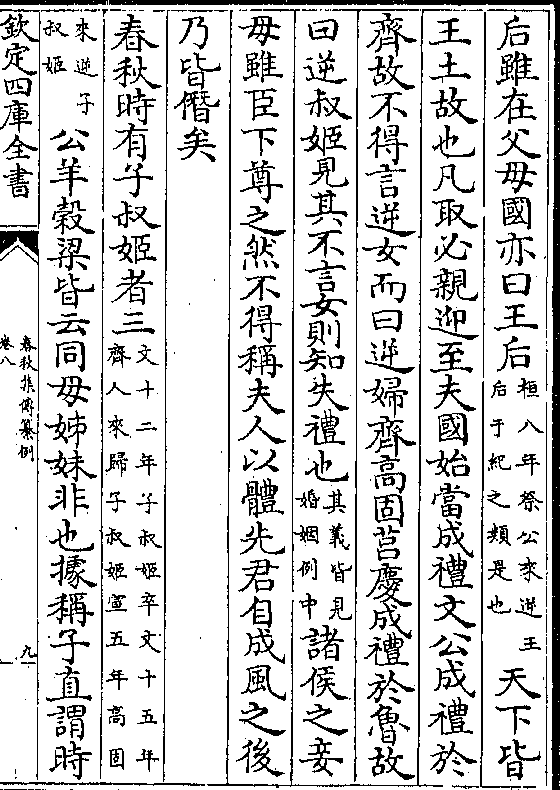 后雖在父母國亦曰王后桓八年祭公來逆王后于紀之類是也天下皆
王土故也凡取必親迎至夫國始當成禮文公成禮於
齊故不得言逆女而曰逆婦齊高固莒慶成禮於魯故
曰逆叔姬見其不言女則知失禮也其義皆見婚姻例中諸侯之妾
母雖臣下尊之然不得稱夫人以體先君自成風之後
乃皆僭矣
春秋時有子叔姬者三文十二年子叔姬卒文十五年齊人來歸子叔姬宣五年高固
來逆子叔姬公羊榖梁皆云同母姊妹非也據稱子直謂時
欽定四庫全書
春秋集傳纂例
卷八
九